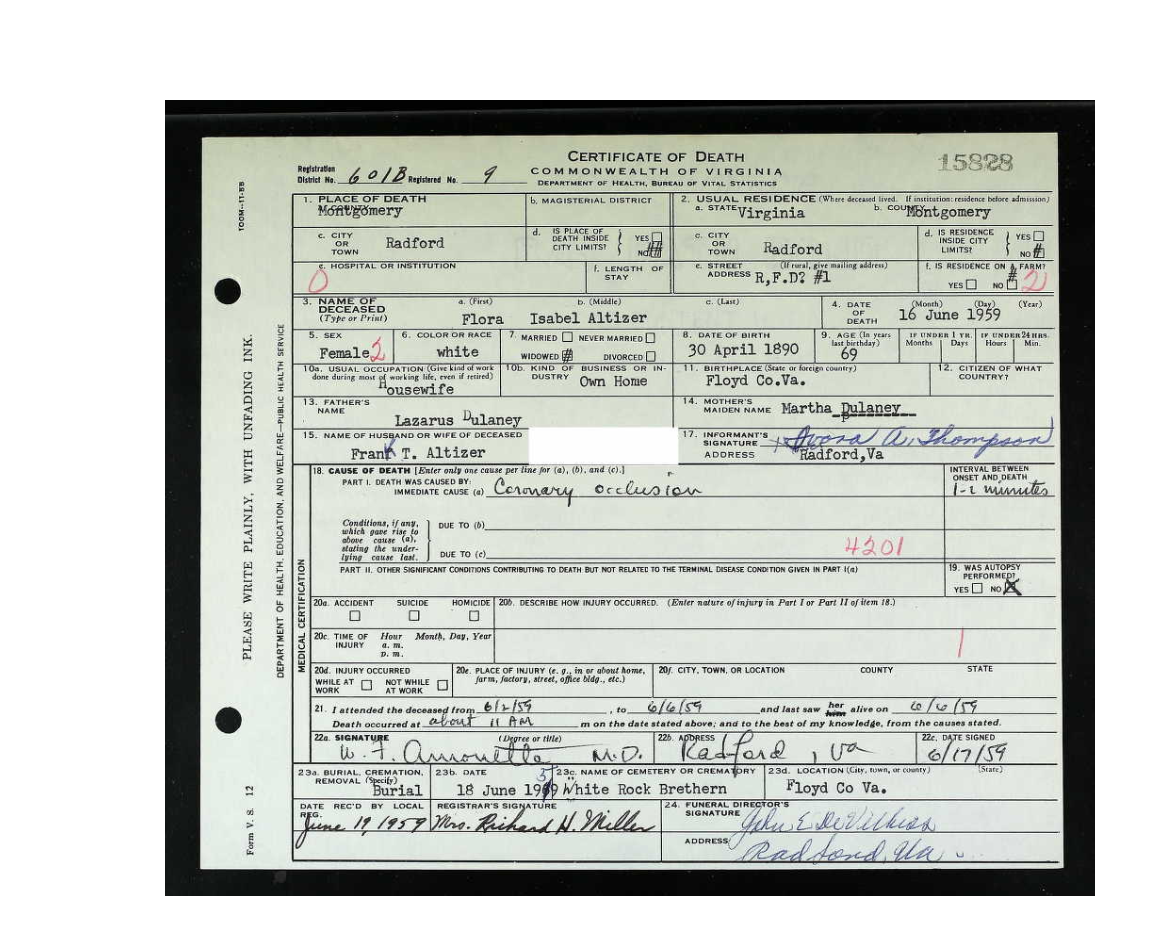 CERTIFICATE OF DEATH
15828
COMMONWEALTH OF VIRGINIA
DEPARTMENT OF HEALTH, BUREAU OF VITAL STATISTICS
Registration District No. 601B Registered No. 9
1. PLACE OF DEATH
a. COUNTY Montgomery
b. MAGISTERIAL DISTRICT
2. USUAL RESIDENCE (Where deceased lived. If institution: residence before admission)
a. STATE Virginia b. COUNTY Montgomery
c. CITY OR TOWN Radford
d. IS PLACE OF DEATH INSIDE CITY LIMITS? YES NO #
c. CITY OR TOWN Radford
d. IS RESIDENCE INSIDE CITY LIMITS? YES NO #
e. HOSPITAL OR INSTITUTION
0
f. LENGTH OF STAY
e. STREET ADDRESS (If rural, give mailing address) R,F.D? #1
f. IS RESIDENCE ON A FARM? YES NO # 2
3. NAME OF DECEASED (Type or Print)
a. (First) b. (Middle) c. (Last)
Flora Isabel Altizer
4. DATE OF DEATH (Month) (Day) (Year)
16 June 1959
5. SEX Female 2
6. COLOR OR RACE white
7. MARRIED NEVER MARRIED
WIDOWED # DIVORCED
8. DATE OF BIRTH 30 April 1890
9. AGE (In years last birthday) 69
IF UNDER 1 YR. Months Days
IF UNDER 24 HRS. Hours Min.
10a. USUAL OCCUPATION (Give kind of work done during most of working life, even if retired) Housewife
10b. KIND OF BUSINESS OR INDUSTRY Own Home
11. BIRTHPLACE (State or foreign country) Floyd Co.Va.
12. CITIZEN OF WHAT COUNTRY?
13. FATHER'S NAME Lazarus Dulaney
14. MOTHER'S MAIDEN NAME Martha Dulaney
15. NAME OF HUSBAND OR WIFE OF DECEASED
Frank T. Altizer
17. INFORMANT'S SIGNATURE A. Thompson
ADDRESS Radford,Va
18. CAUSE OF DEATH [Enter only one cause per line for (a), (b), and (c).]
INTERVAL BETWEEN ONSET AND DEATH
PART I. DEATH WAS CAUSED BY:
IMMEDIATE CAUSE (a) Coronary occlusion
1-2 minutes
Conditions, if any, which gave rise to above cause (a), stating the underlying cause last.
DUE TO (b)
DUE TO (c)
4201
PART II. OTHER SIGNIFICANT CONDITIONS CONTRIBUTING TO DEATH BUT NOT RELATED TO THE TERMINAL DISEASE CONDITION GIVEN IN PART I(a)
19. WAS AUTOPSY PERFORMED? YES NO X
20a. ACCIDENT SUICIDE HOMICIDE
20b. DESCRIBE HOW INJURY OCCURRED. (Enter nature of injury in Part I or Part II of item 18.)
20c. TIME OF INJURY Hour a. m. p. m. Month, Day, Year
1
20d. INJURY OCCURRED WHILE AT WORK NOT WHILE AT WORK
20e. PLACE OF INJURY (e. g., in or about home, farm, factory, street, office bldg., etc.)
20f. CITY, TOWN, OR LOCATION COUNTY STATE
21. I attended the deceased from 6/2/59, to 6/6/59 and last saw her him alive on 6/6/59
Death occurred at about 11 AM m on the date stated above; and to the best of my knowledge, from the causes stated.
22a. SIGNATURE (Degree or title) M.D.
22b. ADDRESS Radford, Va
22c. DATE SIGNED 6/17/59
23a. BURIAL, CREMATION, REMOVAL (Specify) Burial
23b. DATE 18 June 1959
23c. NAME OF CEMETERY OR CREMATORY White Rock Brethern
23d. LOCATION (City, town, or county) (State) Floyd Co Va.
DATE REC'D BY LOCAL REG. June 19, 1959
REGISTRAR'S SIGNATURE Mrs. Richard H. Miller
24. FUNERAL DIRECTOR'S SIGNATURE John E. DeVilbiss
ADDRESS Radford, Va
MEDICAL CERTIFICATION
DEPARTMENT OF HEALTH, EDUCATION, AND WELFARE—PUBLIC HEALTH SERVICE
PLEASE WRITE PLAINLY, WITH UNFADING INK.
Form V. S. 12